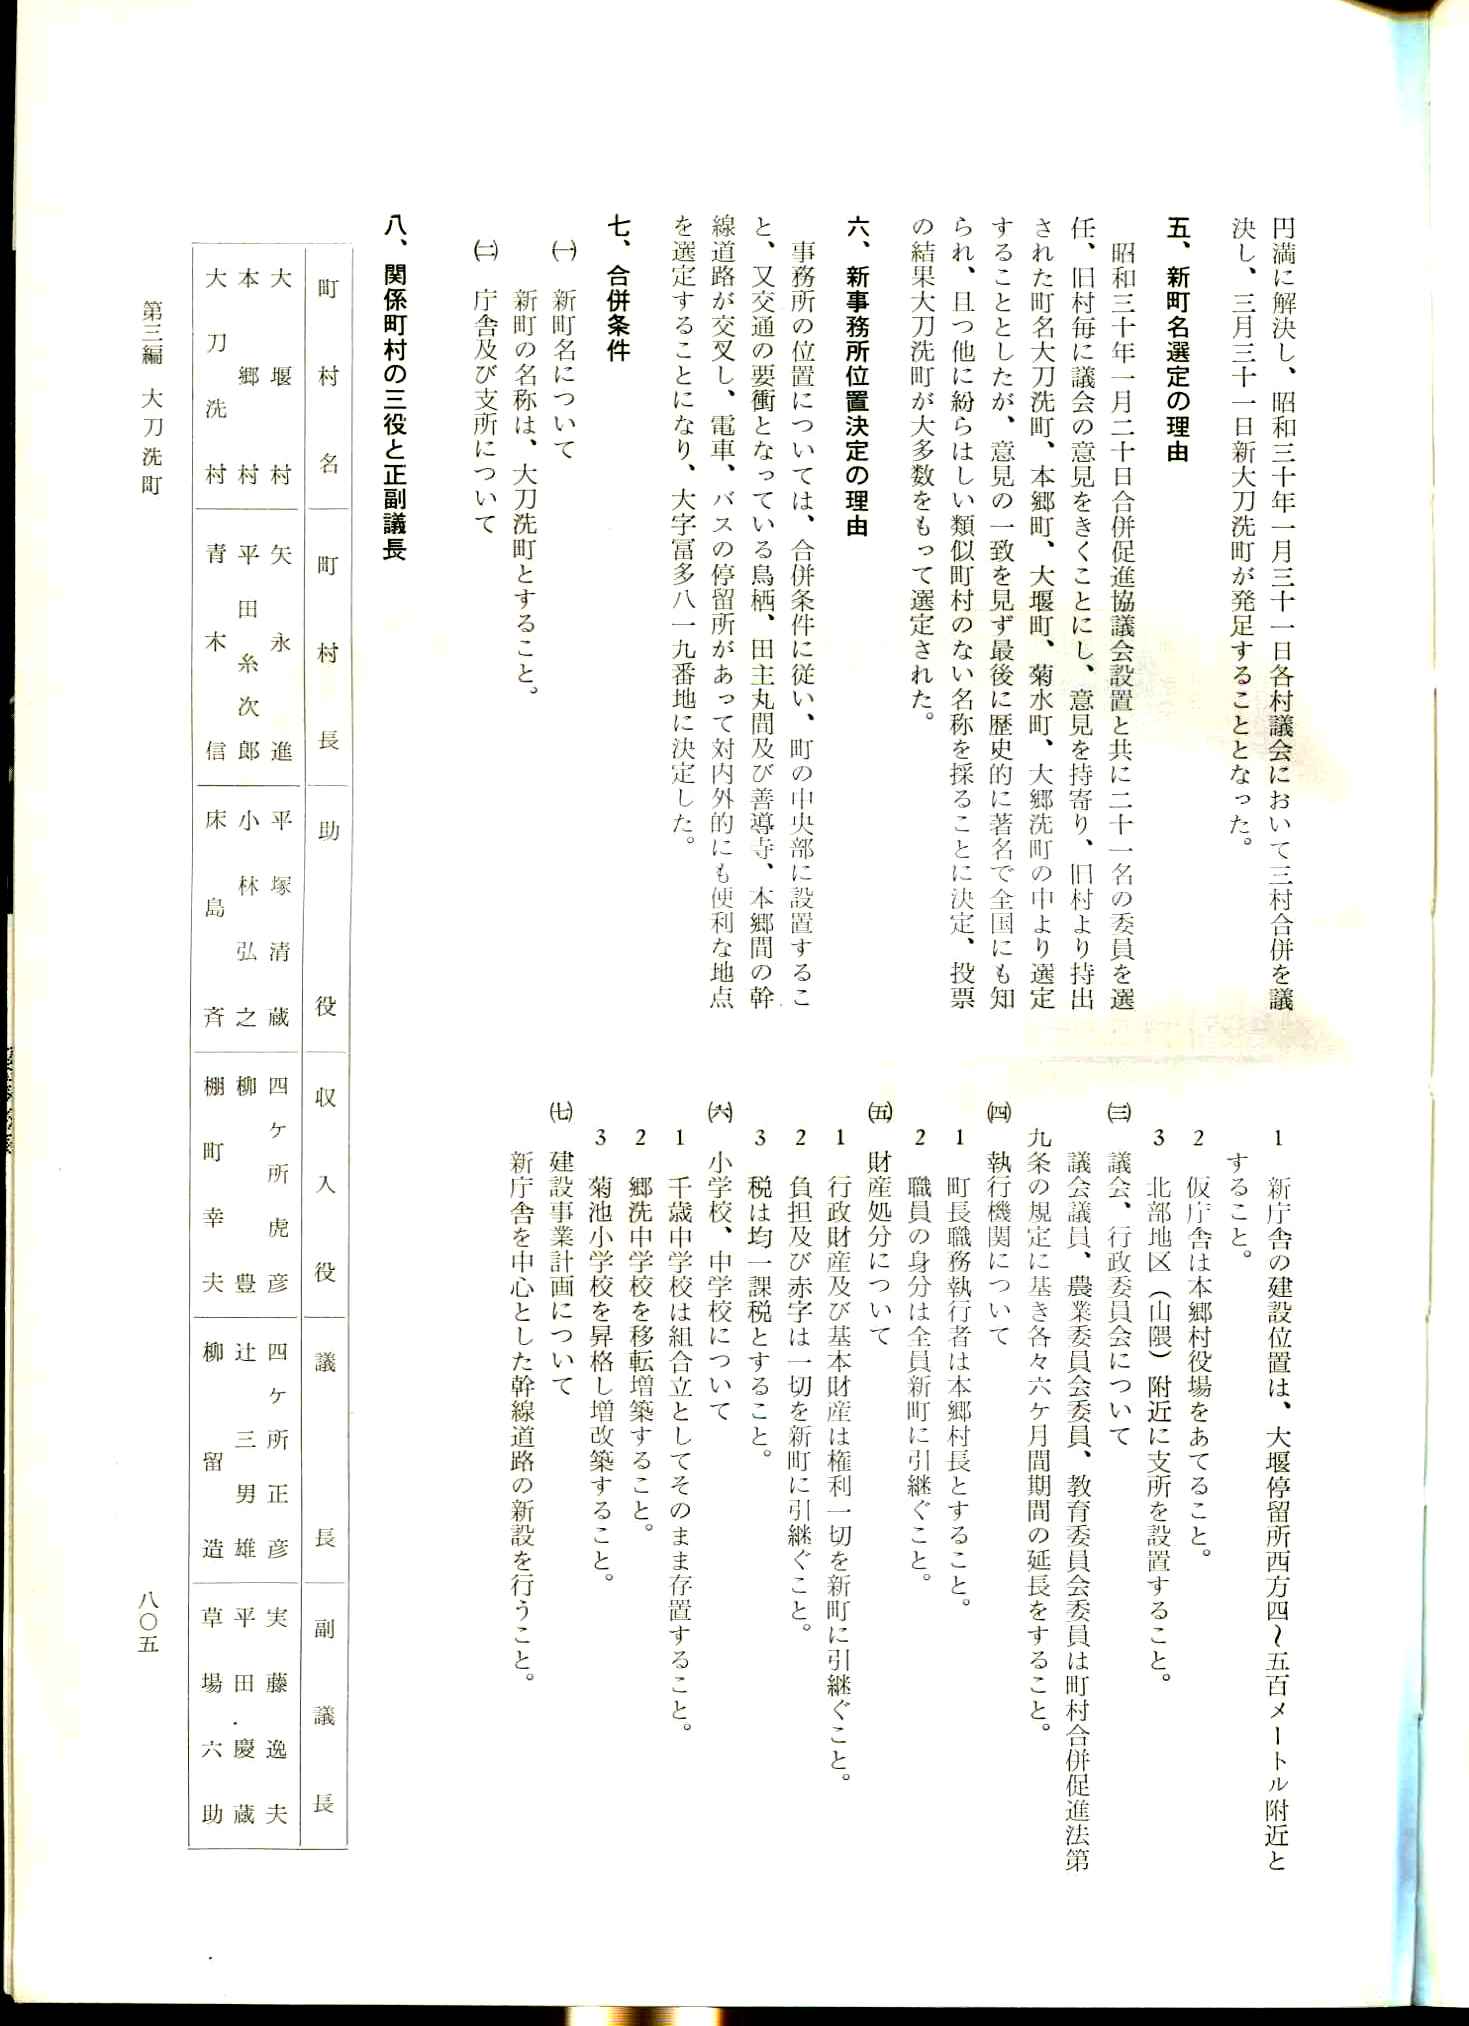 円満に解決し、昭和三十年一月三十一日各村議会において三村合併を議
決し、三月三十一日新大刀洗町が発足することとなった。
五、新町名選定の理由
昭和三十年一月二十日合併促進協議会設置と共に二十一名の委員を選
任、旧村毎に議会の意見をきくことにし、意見を持寄り、旧村より持出
された町名大刀洗町、本郷町、大堰町、菊水町、大郷洗町の中より選定
することとしたが、意見の一致を見ず最後に歴史的に著名で全国にも知
られ、且つ他に紛らはしい類似町村のない名称を採ることに決定、投票
の結果大刀洗町が大多数をもって選定された。
六、新事務所位置決定の理由
事務所の位置については、合併条件に従い、町の中央部に設置するこ
と、又交通の要衝となっている鳥栖、田主丸間及び善導寺、本郷間の幹
線道路が交叉し、電車、バスの停留所があって対内外的にも便利な地点
を選定することになり、大字冨多八一九番地に決定した。
七、合併条件
㈠ 新町名について
新町の名称は、大刀洗町とすること。
㈡ 庁舎及び支所について
1 新庁舎の建設位置は、大堰停留所西方四〜五百メートル附近と
すること。
2 仮庁舎は本郷村役場をあてること。
3 北部地区（山隈）附近に支所を設置すること。
㈢ 議会、行政委員会について
議会議員、農業委員会委員、教育委員会委員は町村合併促進法第
九条の規定に基き各々六ケ月間期間の延長をすること。
㈣ 執行機関について
1 町長職務執行者は本郷村長とすること。
2 職員の身分は全員新町に引継ぐこと。
㈤ 財産処分について
1 行政財産及び基本財産は権利一切を新町に引継ぐこと。
2 負担及び赤字は一切を新町に引継ぐこと。
3 税は均一課税とすること。
㈥ 小学校、中学校について
1 千歳中学校は組合立としてそのまま存置すること。
2 郷洗中学校を移転増築すること。
3 菊池小学校を昇格し増改築すること。
㈦ 建設事業計画について
新庁舎を中心とした幹線道路の新設を行うこと。
八、関係町村の三役と正副議長
町村名 町村長 助役 収入役 議長 副議長
大堰村 矢永進 平塚清蔵 四ケ所虎彦 四ケ所正彦 実藤逸夫
本郷村 平田糸次郎 小林弘之 柳豊 辻三男雄 平田慶蔵
大刀洗村 青木信 床島斉 棚町幸夫 柳留造 草場六助
第三編 大刀洗町
八〇五